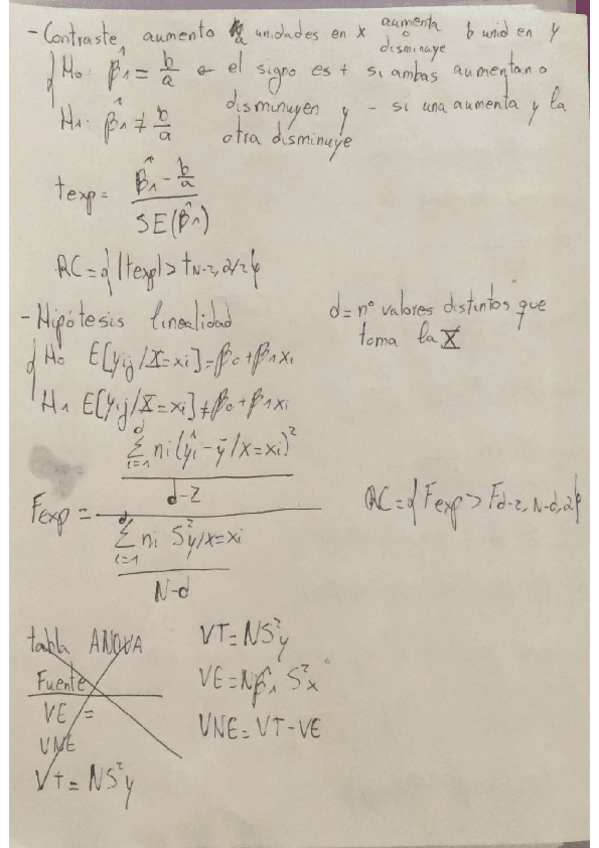 - Contraste, aumento a unidades en x aumenta o disminuye b unid en y
H0: β̂1 = b/a ← el signo es + si ambas aumentan o
H1: β̂1 ≠ b/a disminuyen y - si una aumenta y la
otra disminuye
texp = (β̂1 - b/a) / SE(β̂1)
RC = { |texp| > tN-2, α/2 }
- Hipótesis linealidad
d = nº valores distintos que
toma la X
{ H0 E[yij/X=xi] = β0 + β1xi
H1 E[yij/X=xi] ≠ β0 + β1xi
Fexp = (Σ i=1 d ni(ŷi - ȳ/x=xi)² / d-2) / (Σ i=1 d ni S²y/x=xi / N-d)
RC = { Fexp > Fd-2, N-d, α }
tabla ANOVA
Fuente
VE =
VNE
VT = NS²y
VT = NS²y
VE = Nβ̂1 S²x
VNE = VT - VE